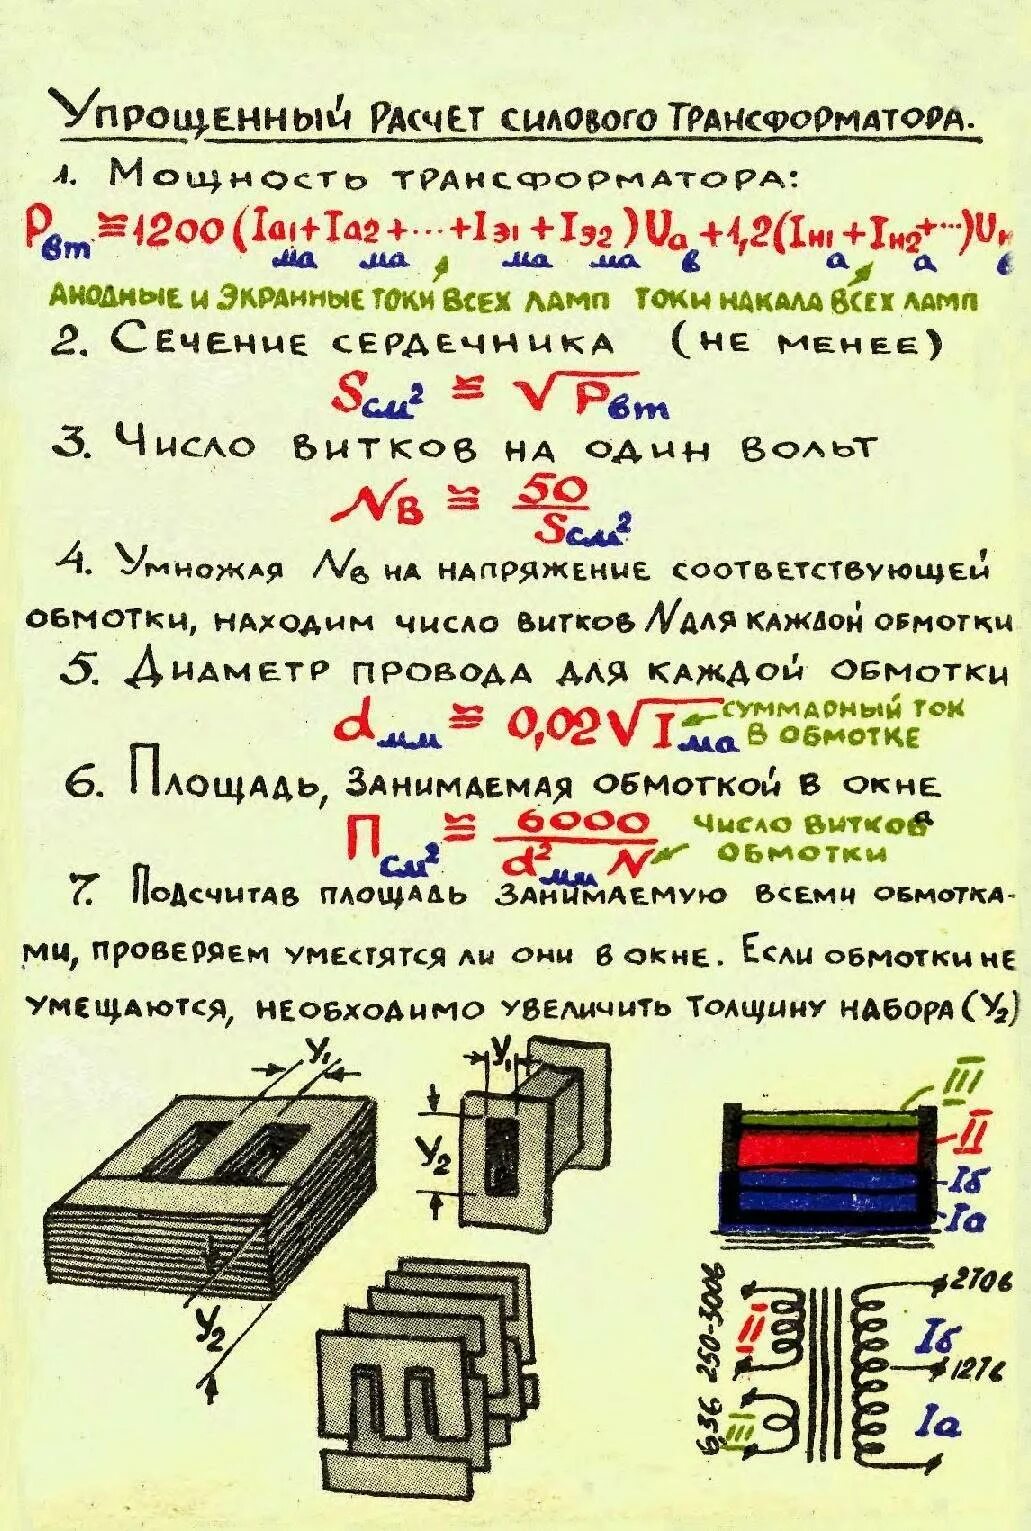 Упрощенный расчет силового трансформатора.
1. Мощность трансформатора:
Pвт ≅ 1200 (Iа1 + Iа2 + ... + Iэ1 + Iэ2) Uа + 1,2 (Iн1 + Iн2 + ...) Uн
ма ма ма ма в а а в
анодные и экранные токи всех ламп токи накала всех ламп
2. Сечение сердечника (не менее)
Sсм² ≅ √Pвт
3. Число витков на один вольт
Nв ≅ 50/Sсм²
4. Умножая Nв на напряжение соответствующей
обмотки, находим число витков N для каждой обмотки
5. Диаметр провода для каждой обмотки
dмм ≅ 0,02 √Iма суммарный ток
в обмотке
6. Площадь, занимаемая обмоткой в окне
Псм² ≅ 6000/d²мм N число витков
обмотки
7. Подсчитав площадь занимаемую всеми обмотка-
ми, проверяем уместятся ли они в окне. Если обмотки не
умещаются, необходимо увеличить толщину набора (У2)
У1
У1
У2
У2
III
II
Iб
Iа
250-300в
6,3в
II
III
270в
Iб
127в
Iа